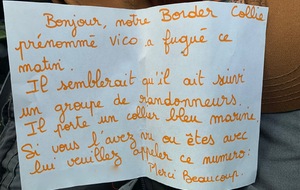 Bonjour, notre Border Collie
prénommé Vico a fugué ce
matin.
Il semblerait qu'il ait suivi
un groupe de randonneurs.
Il porte un collier bleu marine.
Si vous l'avez vu ou êtes avec
lui veuillez appeler ce numero:
Merci Beaucoup.